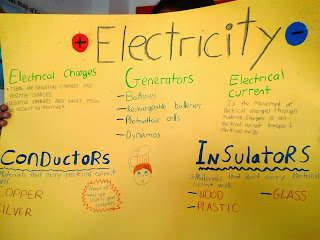 + Electricity -
Electrical Charges
• THERE ARE NEGATIVE CHARGES AND
POSITIVE CHARGES.
NEGATIVE CHARGES PASS EASILY FROM
AN OBJECT TO ANOTHER.
Generators
- Batteries
- Rechargeable batteries
- Photovoltaic cells
- Dynamos
Electrical
current
Is the movement of
electrical charges through
material. Charges in an
electrical current transport
electrical energy
CONDUCTORS
Materials that carry electrical current
well
COPPER
SILVER
INSULATORS
Materials that don't carry electrical
current well.
- WOOD
- GLASS
- PLASTIC